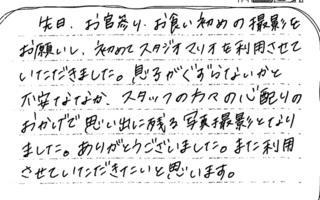 先日、お宮参り、お食い初めの撮影を
お願いし、初めてスタジオマリオを利用させて
いただきました。息子がぐずらないかと
不安ななか、スタッフの方々の心配りの
おかげで思い出に残る写真撮影となり
ました。ありがとうございました。また利用
させていただきたいと思います。